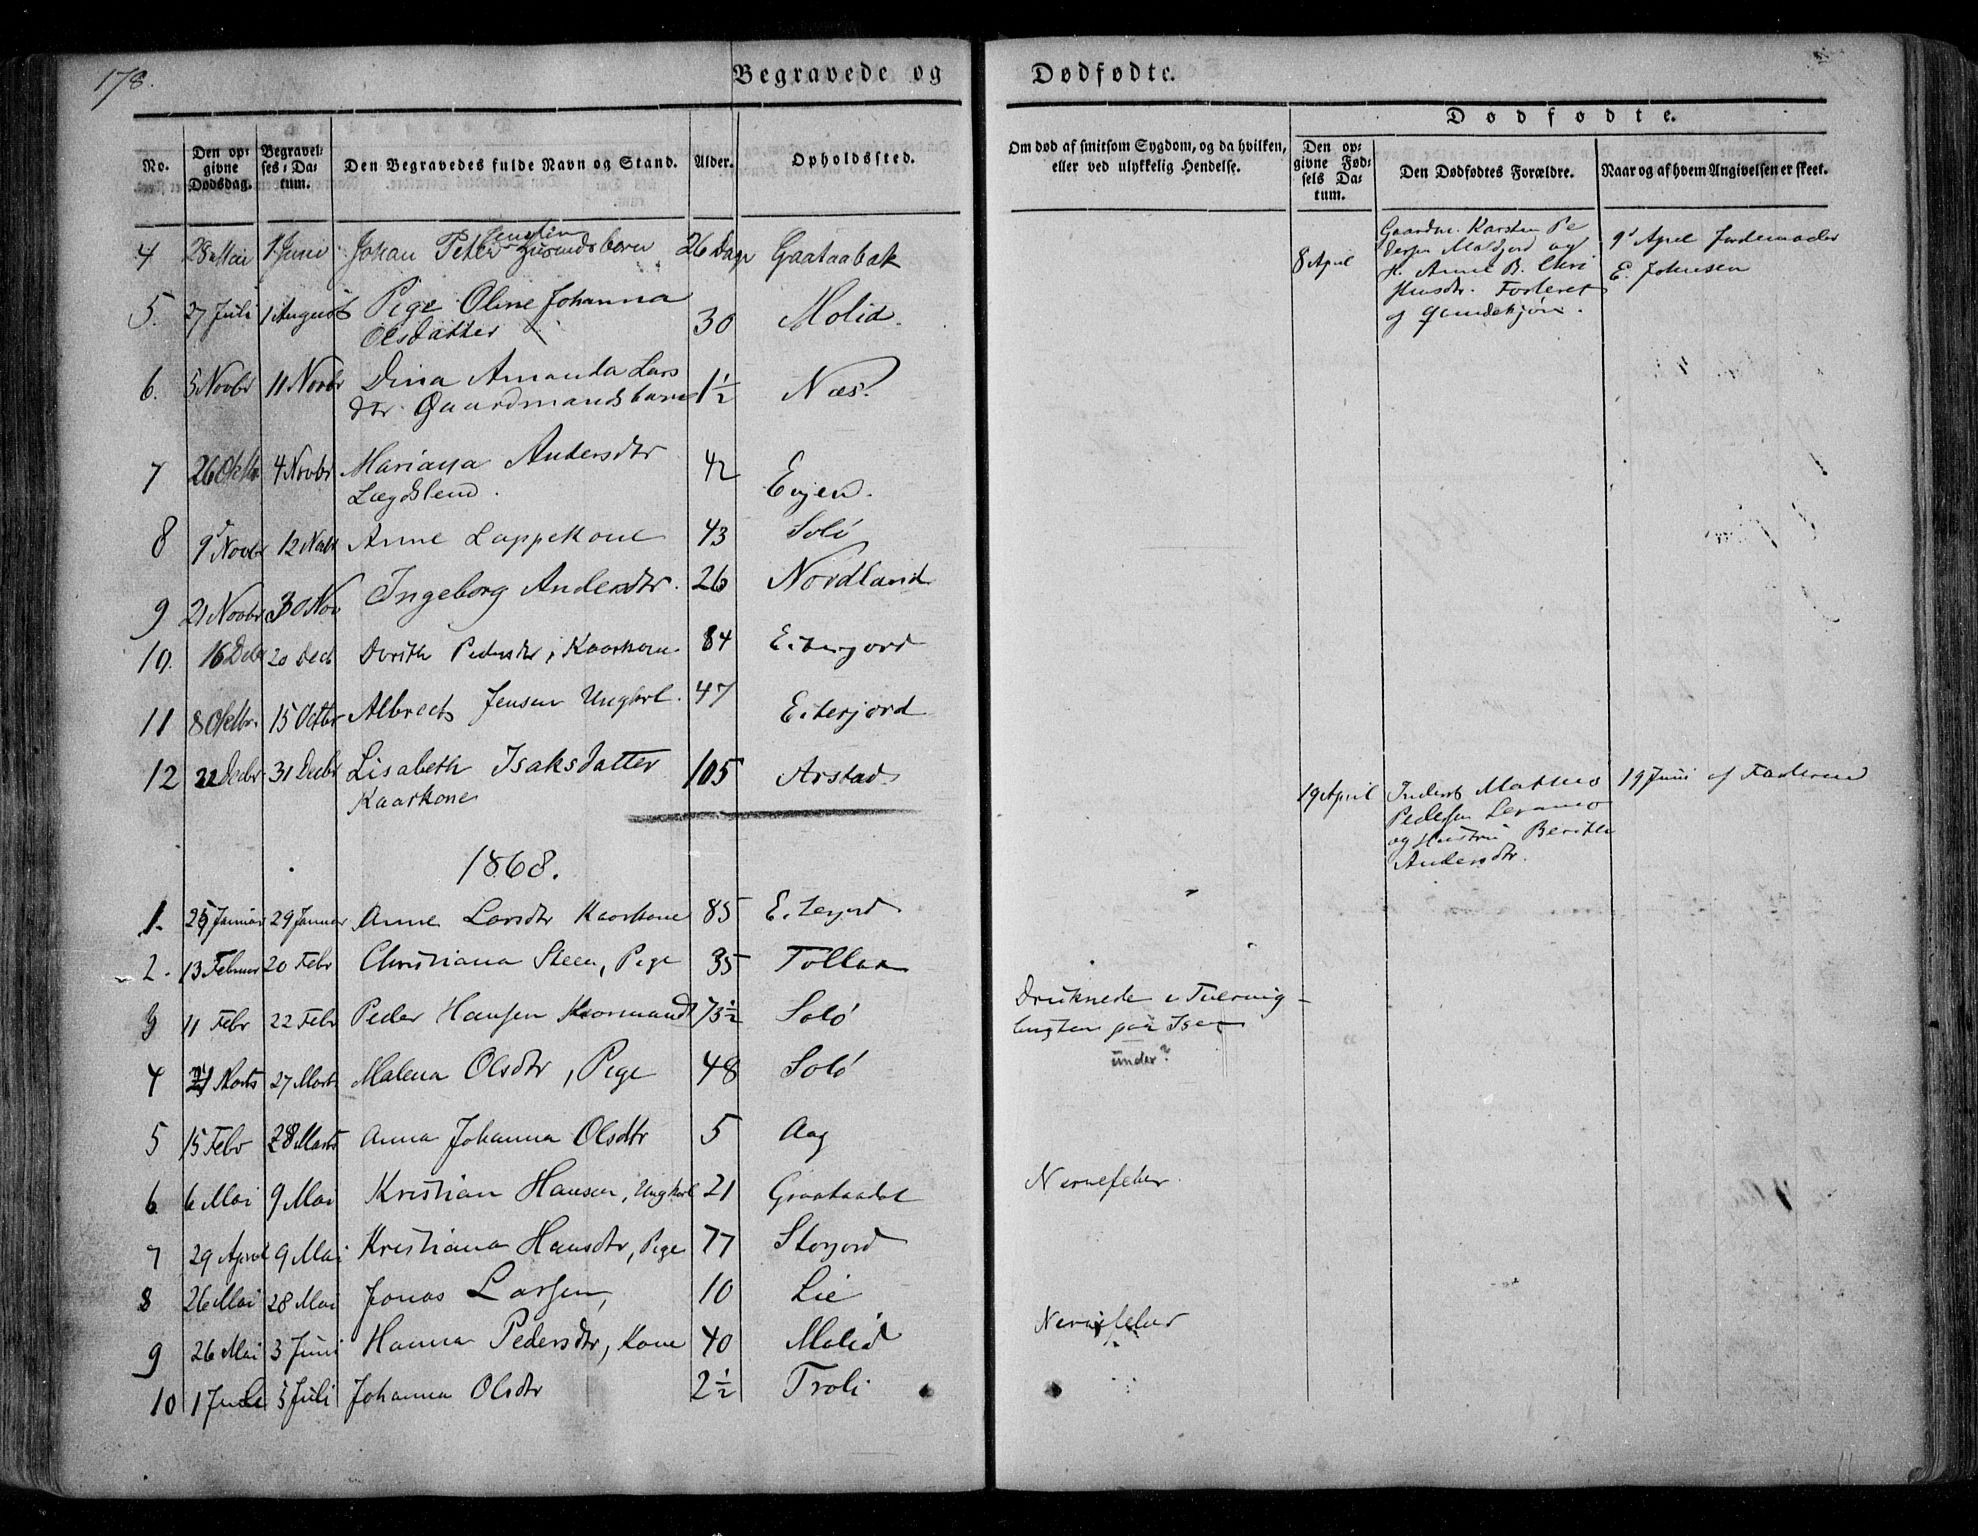 178.
Begravede og Dødfødte.
No.
Den opgivne Dødsdag.
Begravelses-Datum.
Den Begravedes fulde Navn og Stand.
Alder.
Opholdssted.
Om død af smitsom Sygdom, og da hvilken,
eller ved ulykkelig Hendelse.
Dødfødte.
Den opgivne Fødsels Datum.
Den Dødfødtes Forældre.
Naar og af hvem Angivelsen er skeet.
4 28 Mai 1 Juni Johan Peter 26 Dage
5. 27 Juli 1 August Pige Oline Johanna 30 Molid.
Olsdatter
6. 5 Novbr 11 Novbr Dina Amanda Lars 1½ Næs.
dtr. Gaardmandsbarn
7 26 Oktbr 4 Novbr Mariana Andersdtr 42 Evjen.
Lægdslem.
8 9 Novbr 12 Novbr Anne Lappekone 43 Solø
9 21 Novbr 30 Nov Ingeborg Andersdtr. 26 Nordland
10. 16 Decbr 20 Decb Dorith Pedersdtr, Kaarkone. 84 Eiterjord
11 8 Oktbr. 15 Octbr Albrect Jensen Ungkarl. 47 Eiterjord
12 22 Decbr 31 Decbr Lisabeth Isaksdatter 105 Arstad
Kaarkone
8 April
Gaardm. Karsten Pe
dersen Maldjord og
H. Anne B. Chri
stensdtr.
9 April Jordemoder
E. Johnsen
19 April
Inderst Mathis
Pedersen
og Hustru Berith
Andersdtr.
19 Juni af Faderen
1868.
1. 25 Januar 29 Januar Anne Larsdtr Kaarkone 85 Eiterjord
2. 13 Februar 20 Febr Christiana Steen, Pige 35 Tollaa
3 11 Febr 22 Febr Peder Hansen Kaarmand 73½ Solø Druknede i Tverviglugten paa Isen
under?
4 21 Marts 27 Marts Malena Olsdtr, Pige 48 Solø
5 15 Febr 28 Marts Anna Johanna Olsdtr 5 Aag
6 6 Mai 9 Mai Kristian Hansen, Ungkarl 21 Nervefeber.
7 29 April 9 Mai Kristiana Hansdtr, Pige 77 Storjord
8 26 Mai 28 Mai Jonas Larsen, 10 Lie
9 26 Mai 3 Juni Hanna Pedersdtr, Kone 40 Molid Nervefeber
10 1 Juli 5 Juli Johanna Olsdtr 2½ Troli